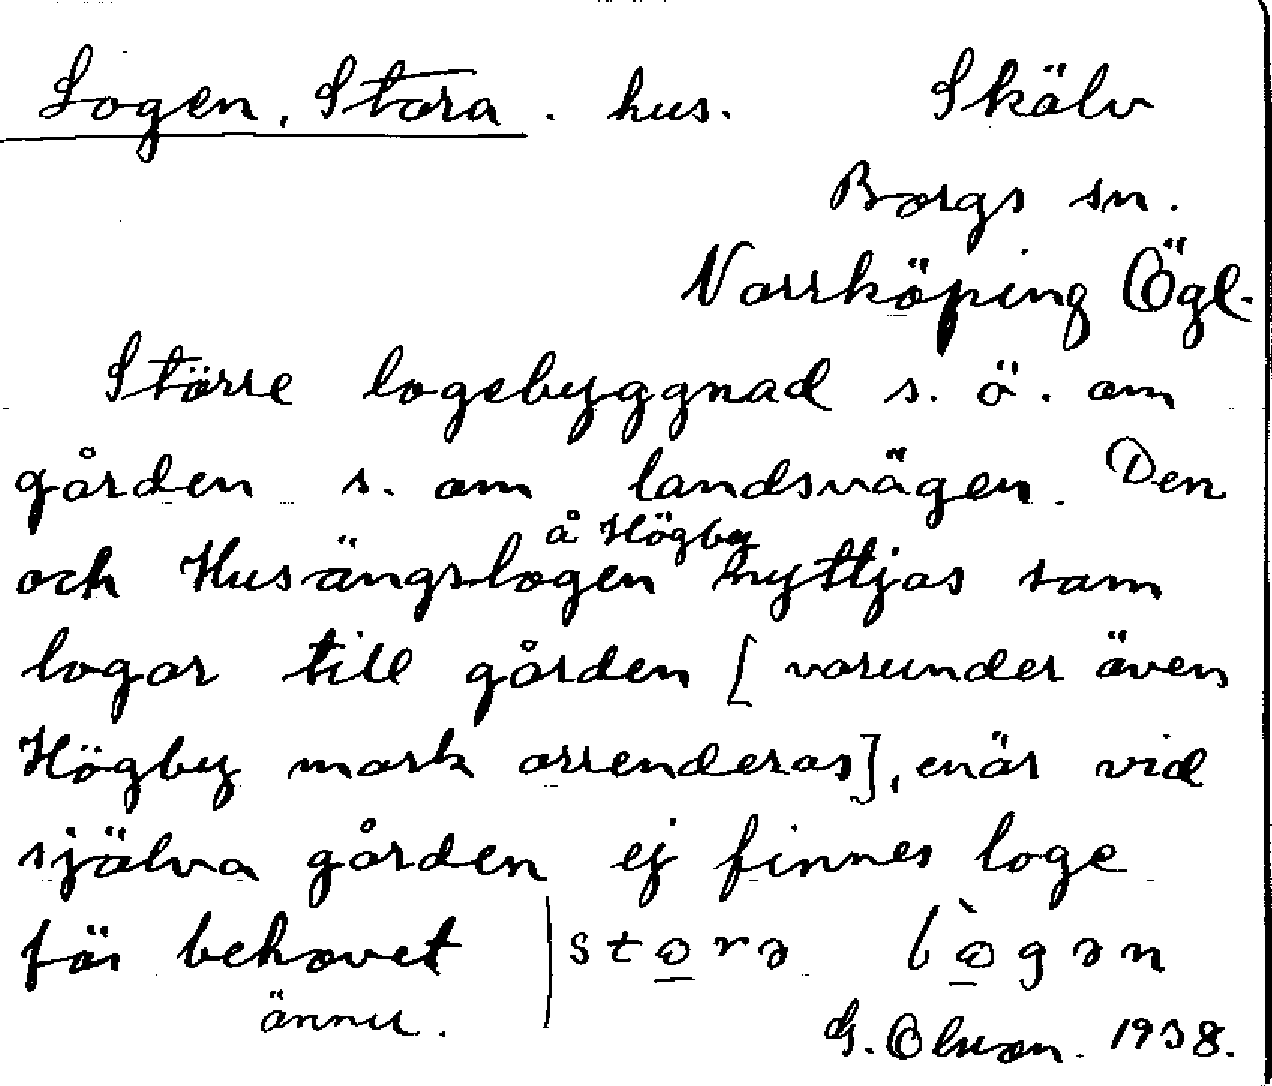 Logen, Stora. hus. Skälv
Borgs sn.
Norrköping Ögl.
Större logebyggnad s. ö. om
gården s. om landsvägen. Den
och Husängslogen å Högby nyttjas som
logar till gården [varunder även
Högby mark arrenderas], enär vid
själva gården ej finnes loge
för behovet | stωrə lὼgən
ännu.
G. Olsson. 1938.